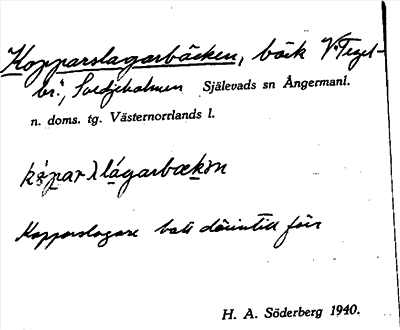 Kopparslagarbäcken, bäck V. Tegel-
br., Svedjeholmen Själevads sn Ångermanl.
n. doms. tg. Västernorrlands l.
Kopparslagare hatt därintill förr
H. A. Söderberg 1940.